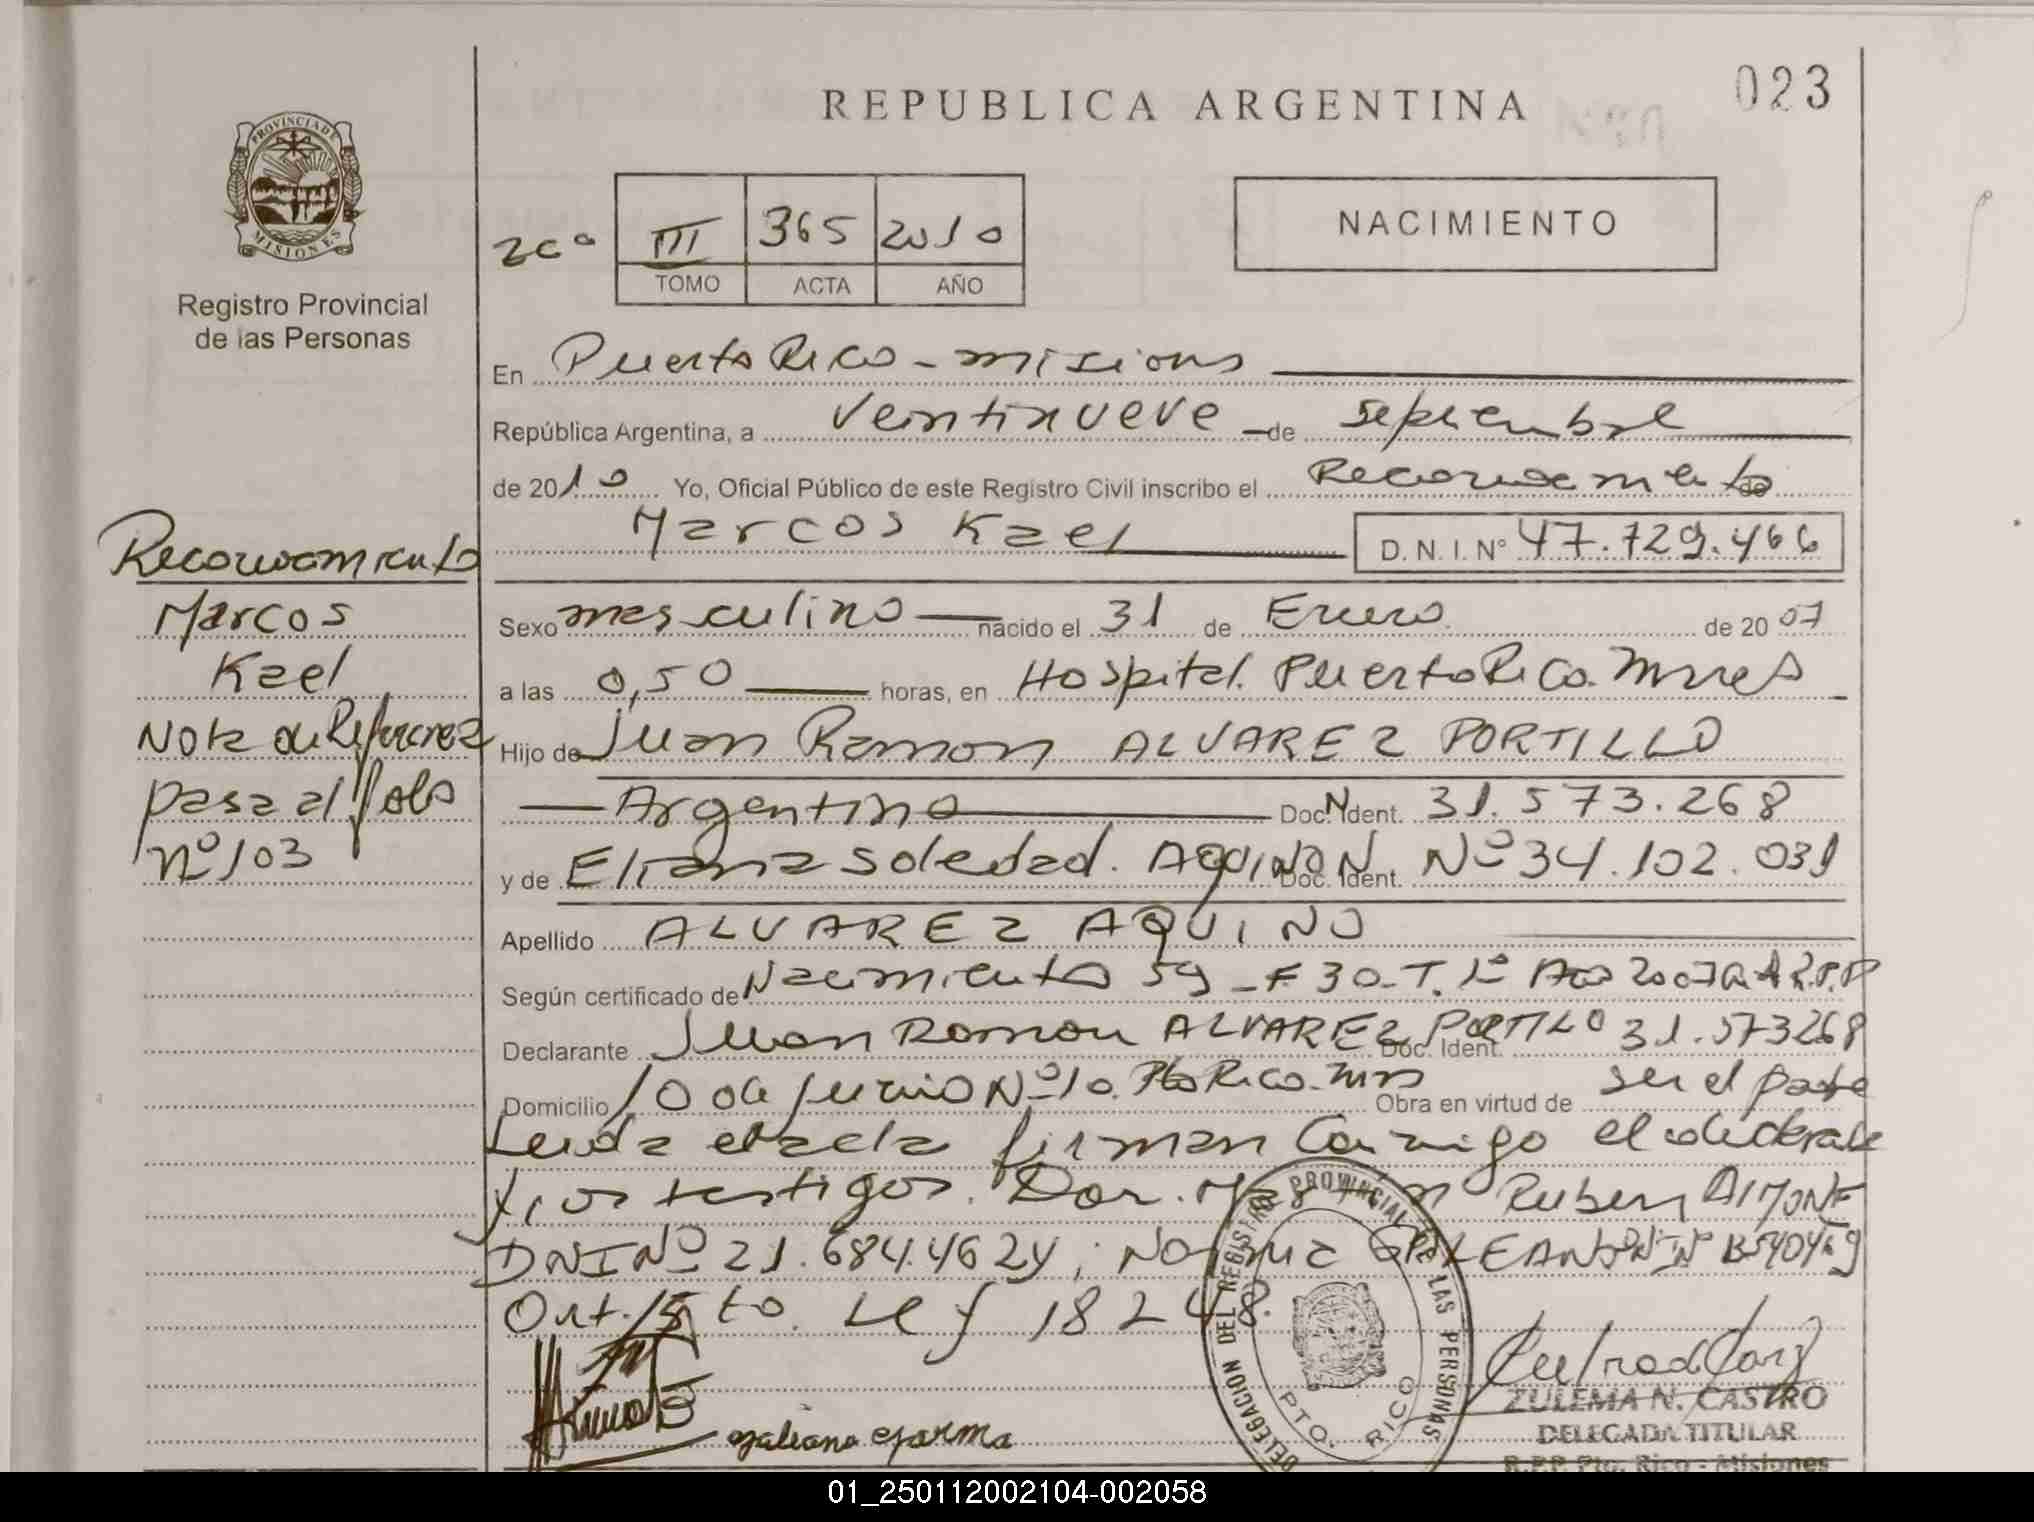 023
REPUBLICA ARGENTINA
PROVINCIA DE
MISIONES
Registro Provincial
de las Personas
III 365 2010
TOMO ACTA AÑO
NACIMIENTO
En Puerto Rico - Misiones
República Argentina, a veintinueve de septiembre
de 2010 Yo, Oficial Público de este Registro Civil inscribo el Reconocimiento de
Marcos Kael D. N. I. Nº 47.729.466
Sexo masculino nacido el 31 de Enero de 2007
a las 0,50 horas, en Hospital. Puerto Rico. Mnes
Hijo de Juan Ramon ALVAREZ PORTILLO
Argentino Doc. Ident. Nº 31.573.268
y de Eliana Soledad. AQUINO Doc. Ident. Nº 34.102.031
Apellido ALVAREZ AQUINO
Según certificado de Nacimiento 59 - F 30 - T. 1º Año 2007 R.P.P
Declarante Juan Ramon ALVAREZ PORTILLO Doc. Ident. 31.573268
Domicilio 10 de junio Nº 10. Pto Rico. Mns Obra en virtud de ser el padre
Leida el acta firman Conmigo el declarante
y los testigos. Don. Ruben
DNI Nº 21.684.462 y; Norma GALEANO DNI Nº
Ley 18248.
galeano norma
DELEGACION DEL REGISTRO PROVINCIAL DE LAS PERSONAS
PTO. RICO
ZULEMA N. CASTRO
DELEGADA TITULAR
R.P.P. Pto. Rico - Misiones
Reconocimiento
Marcos
Kael
Nota de Referencia
pasa al folio
nº 103
01_250112002104-002058